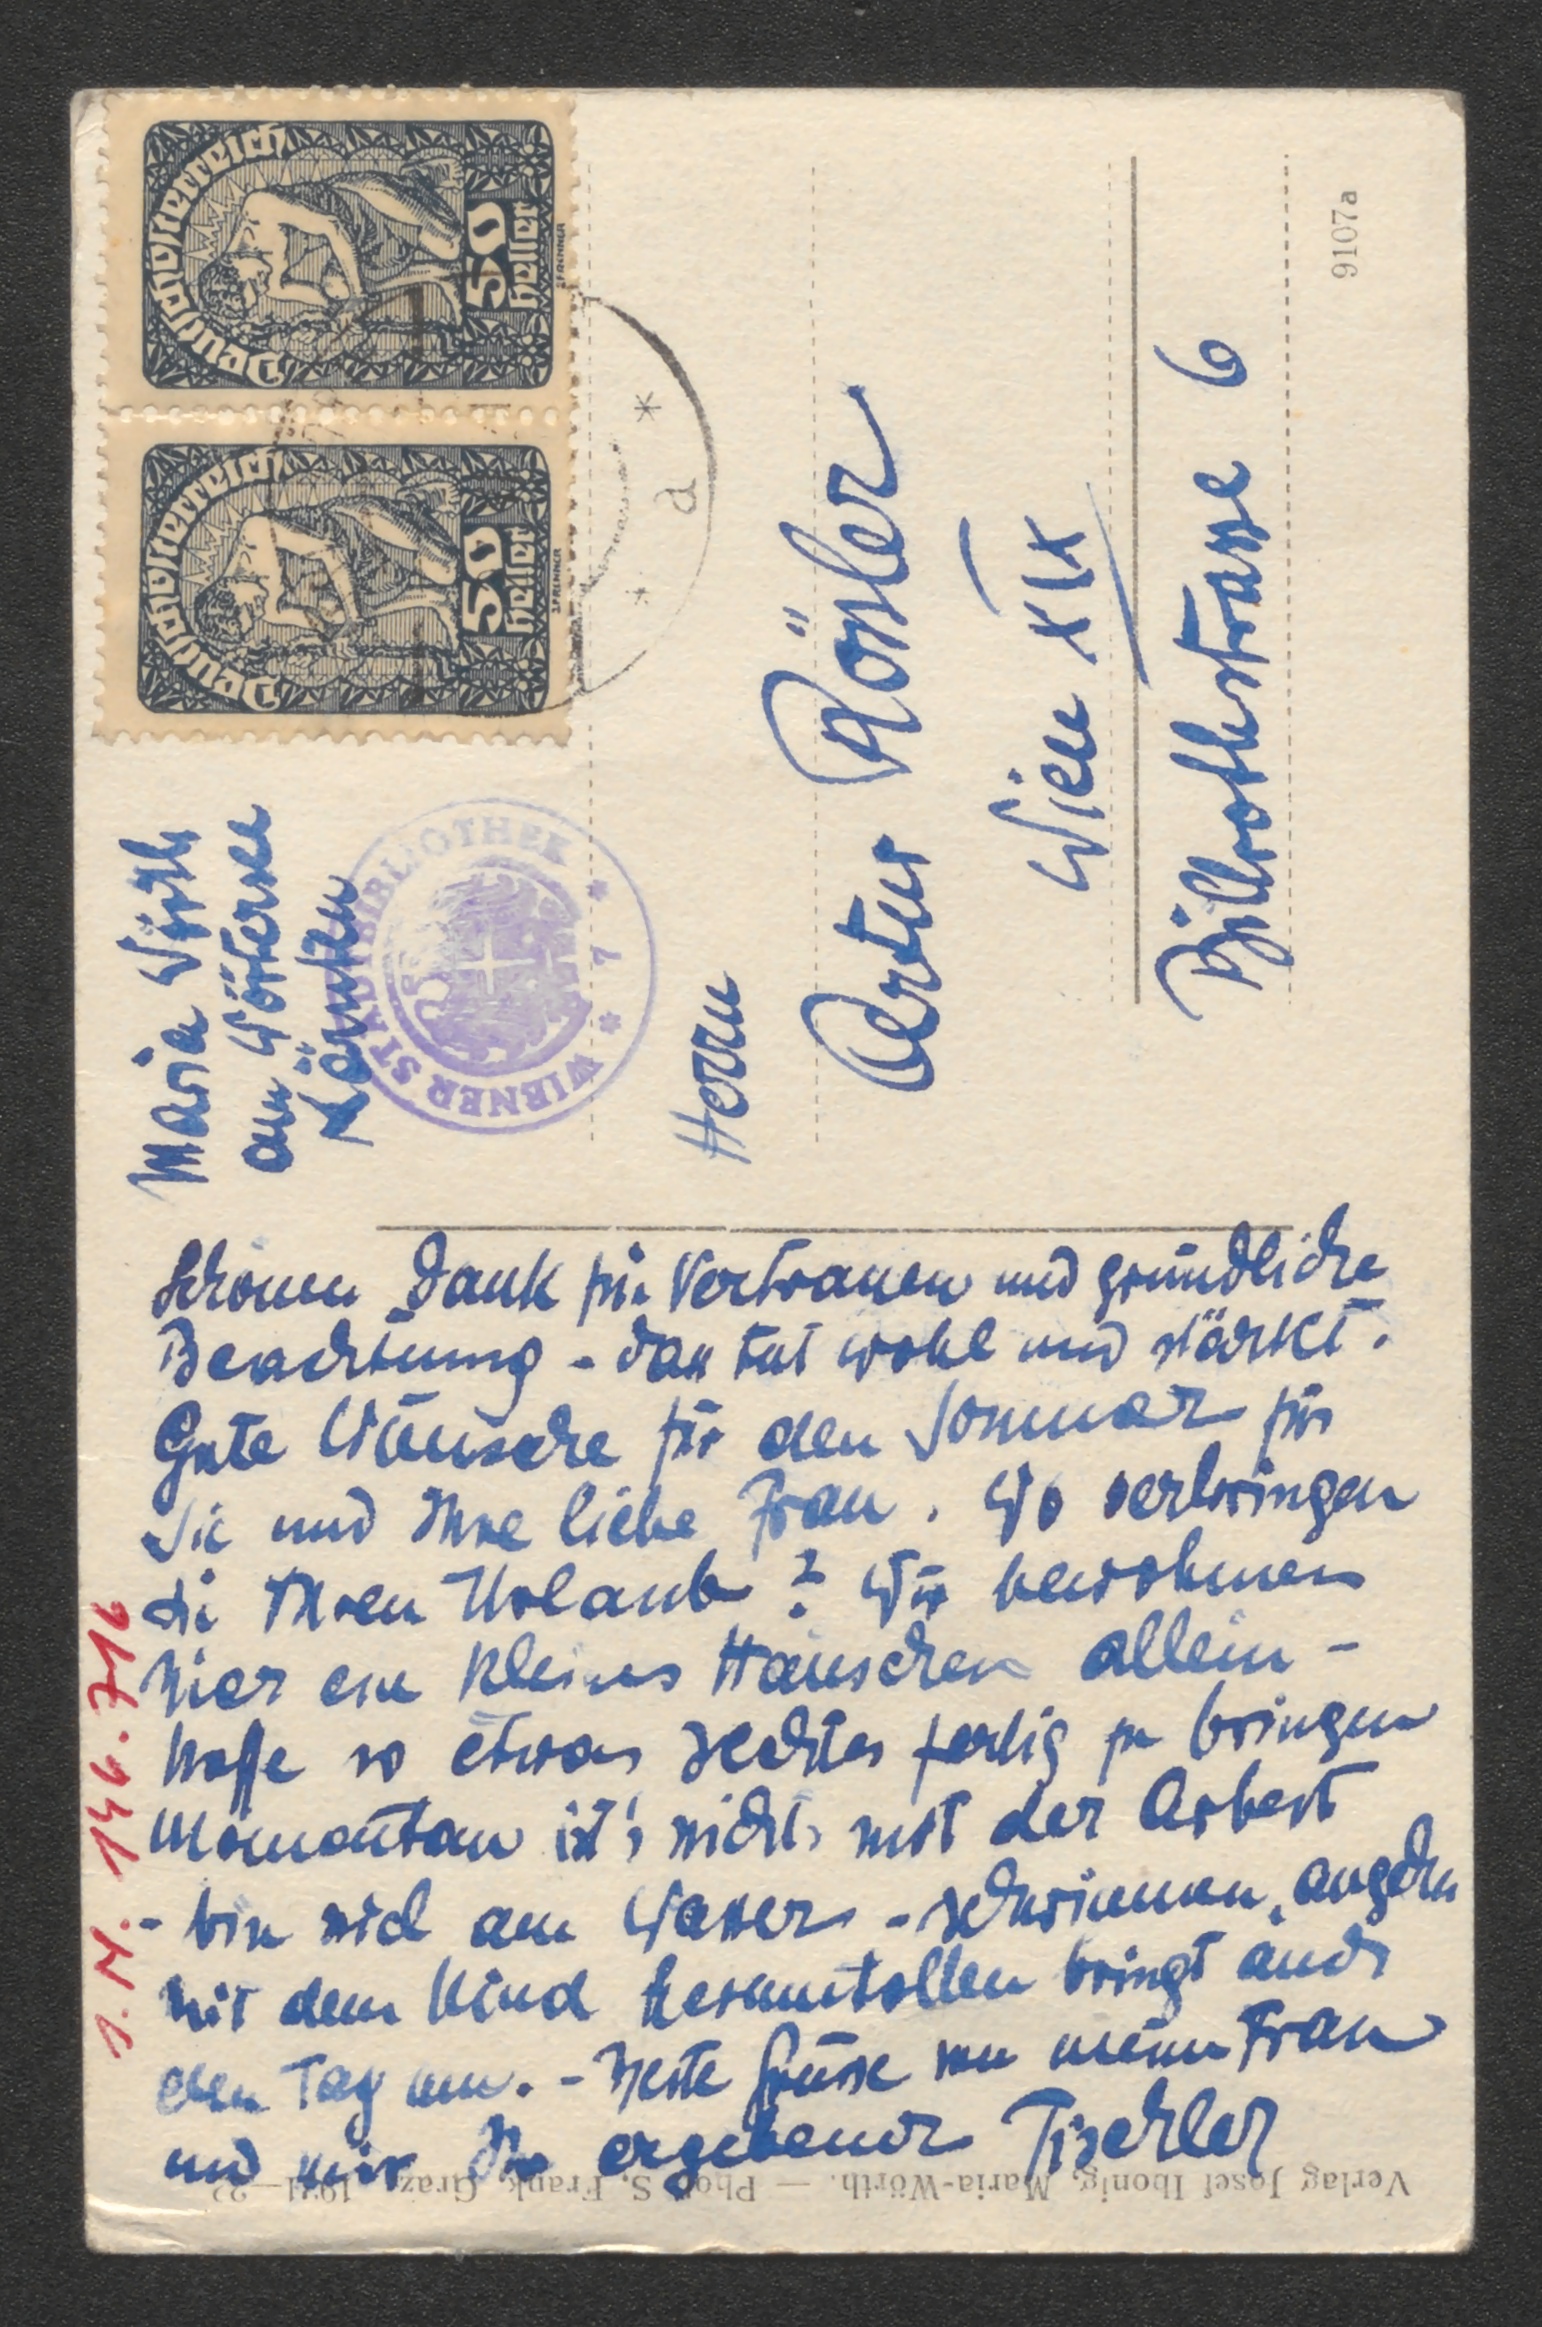 Deutschösterreich
50
heller
Deutschösterreich
50
heller
d
Maria Wörth
am Wörtersee
Kärnten
WIENER STADTBIBLIOTHEK
7
Herrn
Artur Rösler
Wien XIX
Billrothstrasse 6
9107a
Schönen Dank für Vertrauen und gründliche
Beachtung - das tut wohl und stärkt.
Gute Wünsche für den Sommer für
Sie und Ihre liebe Frau. Wo verbringen
Sie Ihren Urlaub? Wir bewohnen
hier ein kleines Häuschen allein -
hoffe so etwas rechtes fertig zu bringen
Momentan ist's nichts mit der Arbeit
- bin viel am Wasser - schwimmen, angeln
mit dem Kind herumtollen bringt auch
den Tag um. - Beste Grüsse von meiner Frau
und mir Ihr ergebener Tischler
J.N. 146.716
Verlag Josef Ibonig, Maria-Wörth. — Phot. S. Frank, Graz, 1921—22